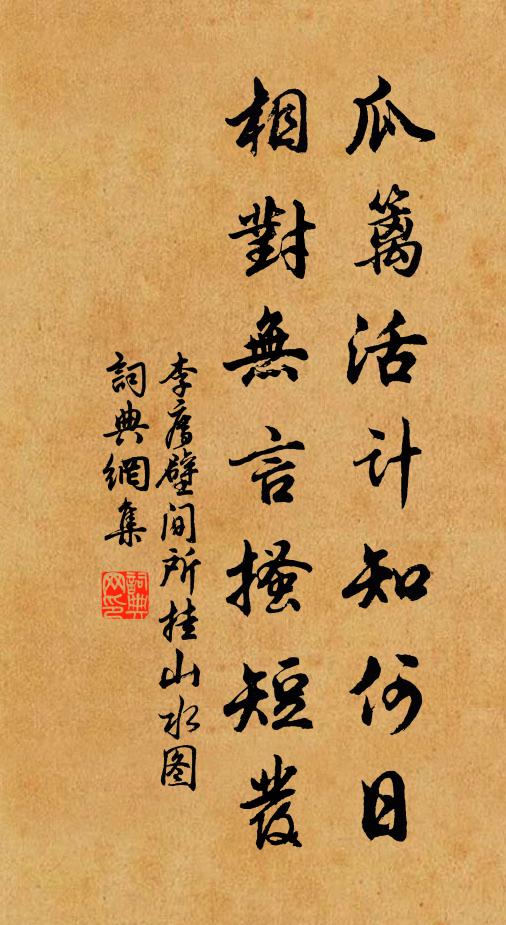 瓜篱活計知何日
相對無言搔短發
李膺壁间所挂山水图
詞典網集
詞典网印